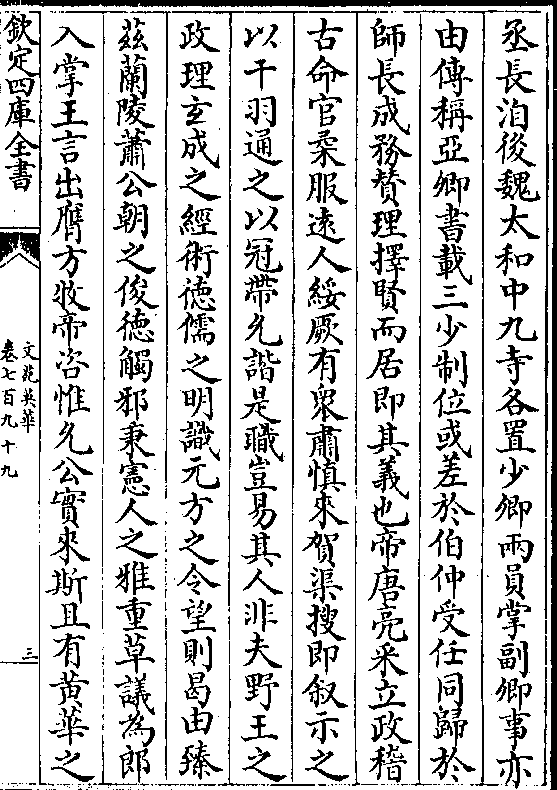 丞長洎後魏太和中九寺各置少卿兩員掌副卿事亦
由傳稱亞卿書載三少制位或差於伯仲受任同歸於
師長成務賛理擇賢而居即其義也帝唐亮采立政稽
古命官柔服逺人綏厥有衆肅慎來賀渠搜即叙示之
以干羽通之以冠帶允諧是職豈易其人非夫野王之
政理𤣥成之經術徳儒之明識元方之令望則曷由臻
茲蘭陵蕭公朝之俊徳觸邪秉憲人之雅重草議為郎
入掌王言出膺方牧帝咨惟允公實來斯且有黃華之
欽定四庫全書
文苑英華
卷七百九十九
三